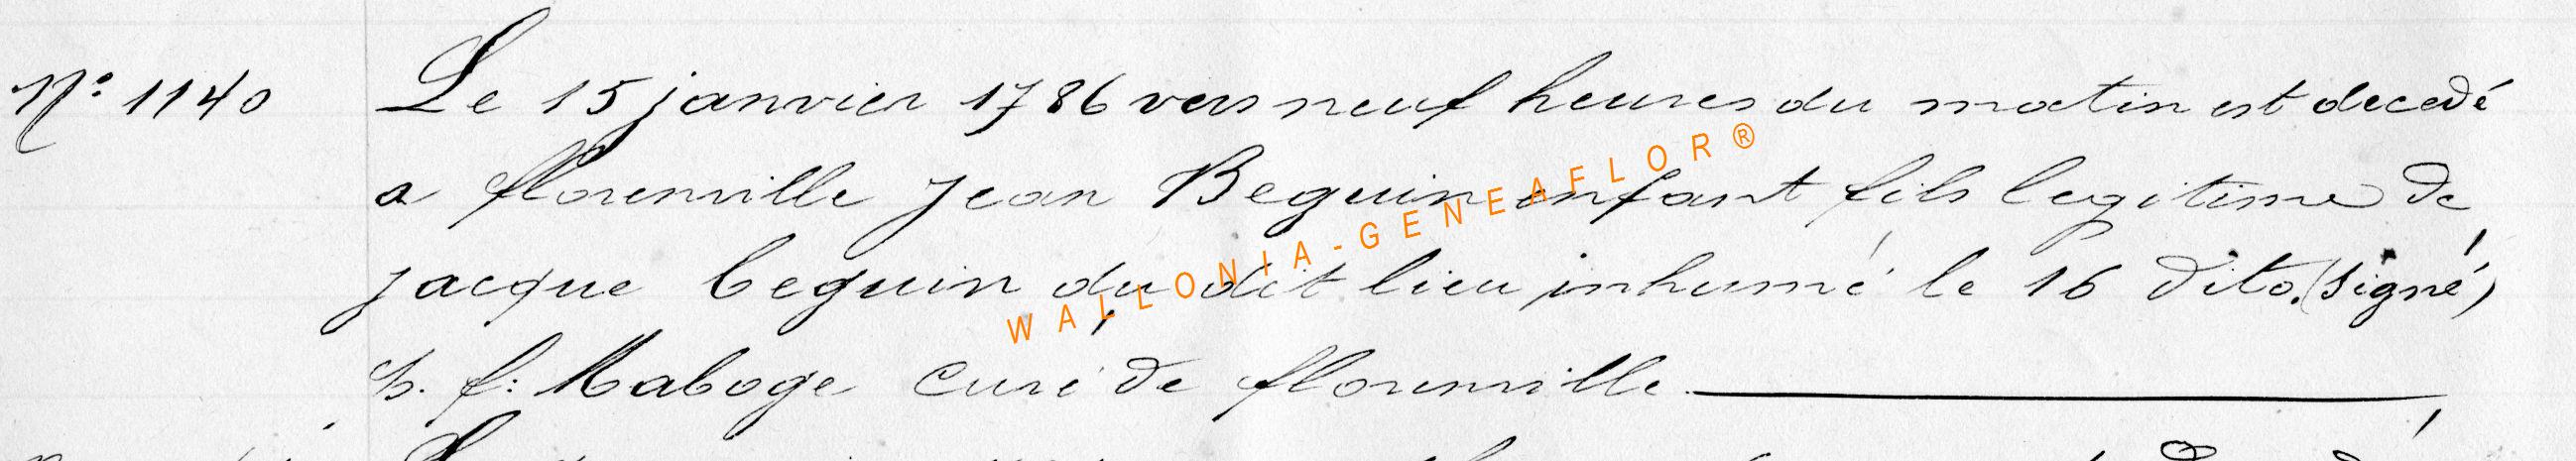 N° 1140 Le 15 janvier 1786 vers neuf heures du matin est decedé
a florenville Jean Beguin enfant fils legitime de
jacque beguin du dit lieu inhumé le 16 dito. (signé)
h. f: Maboge curé de florenville
WALLONIA-GENEAFLOR®